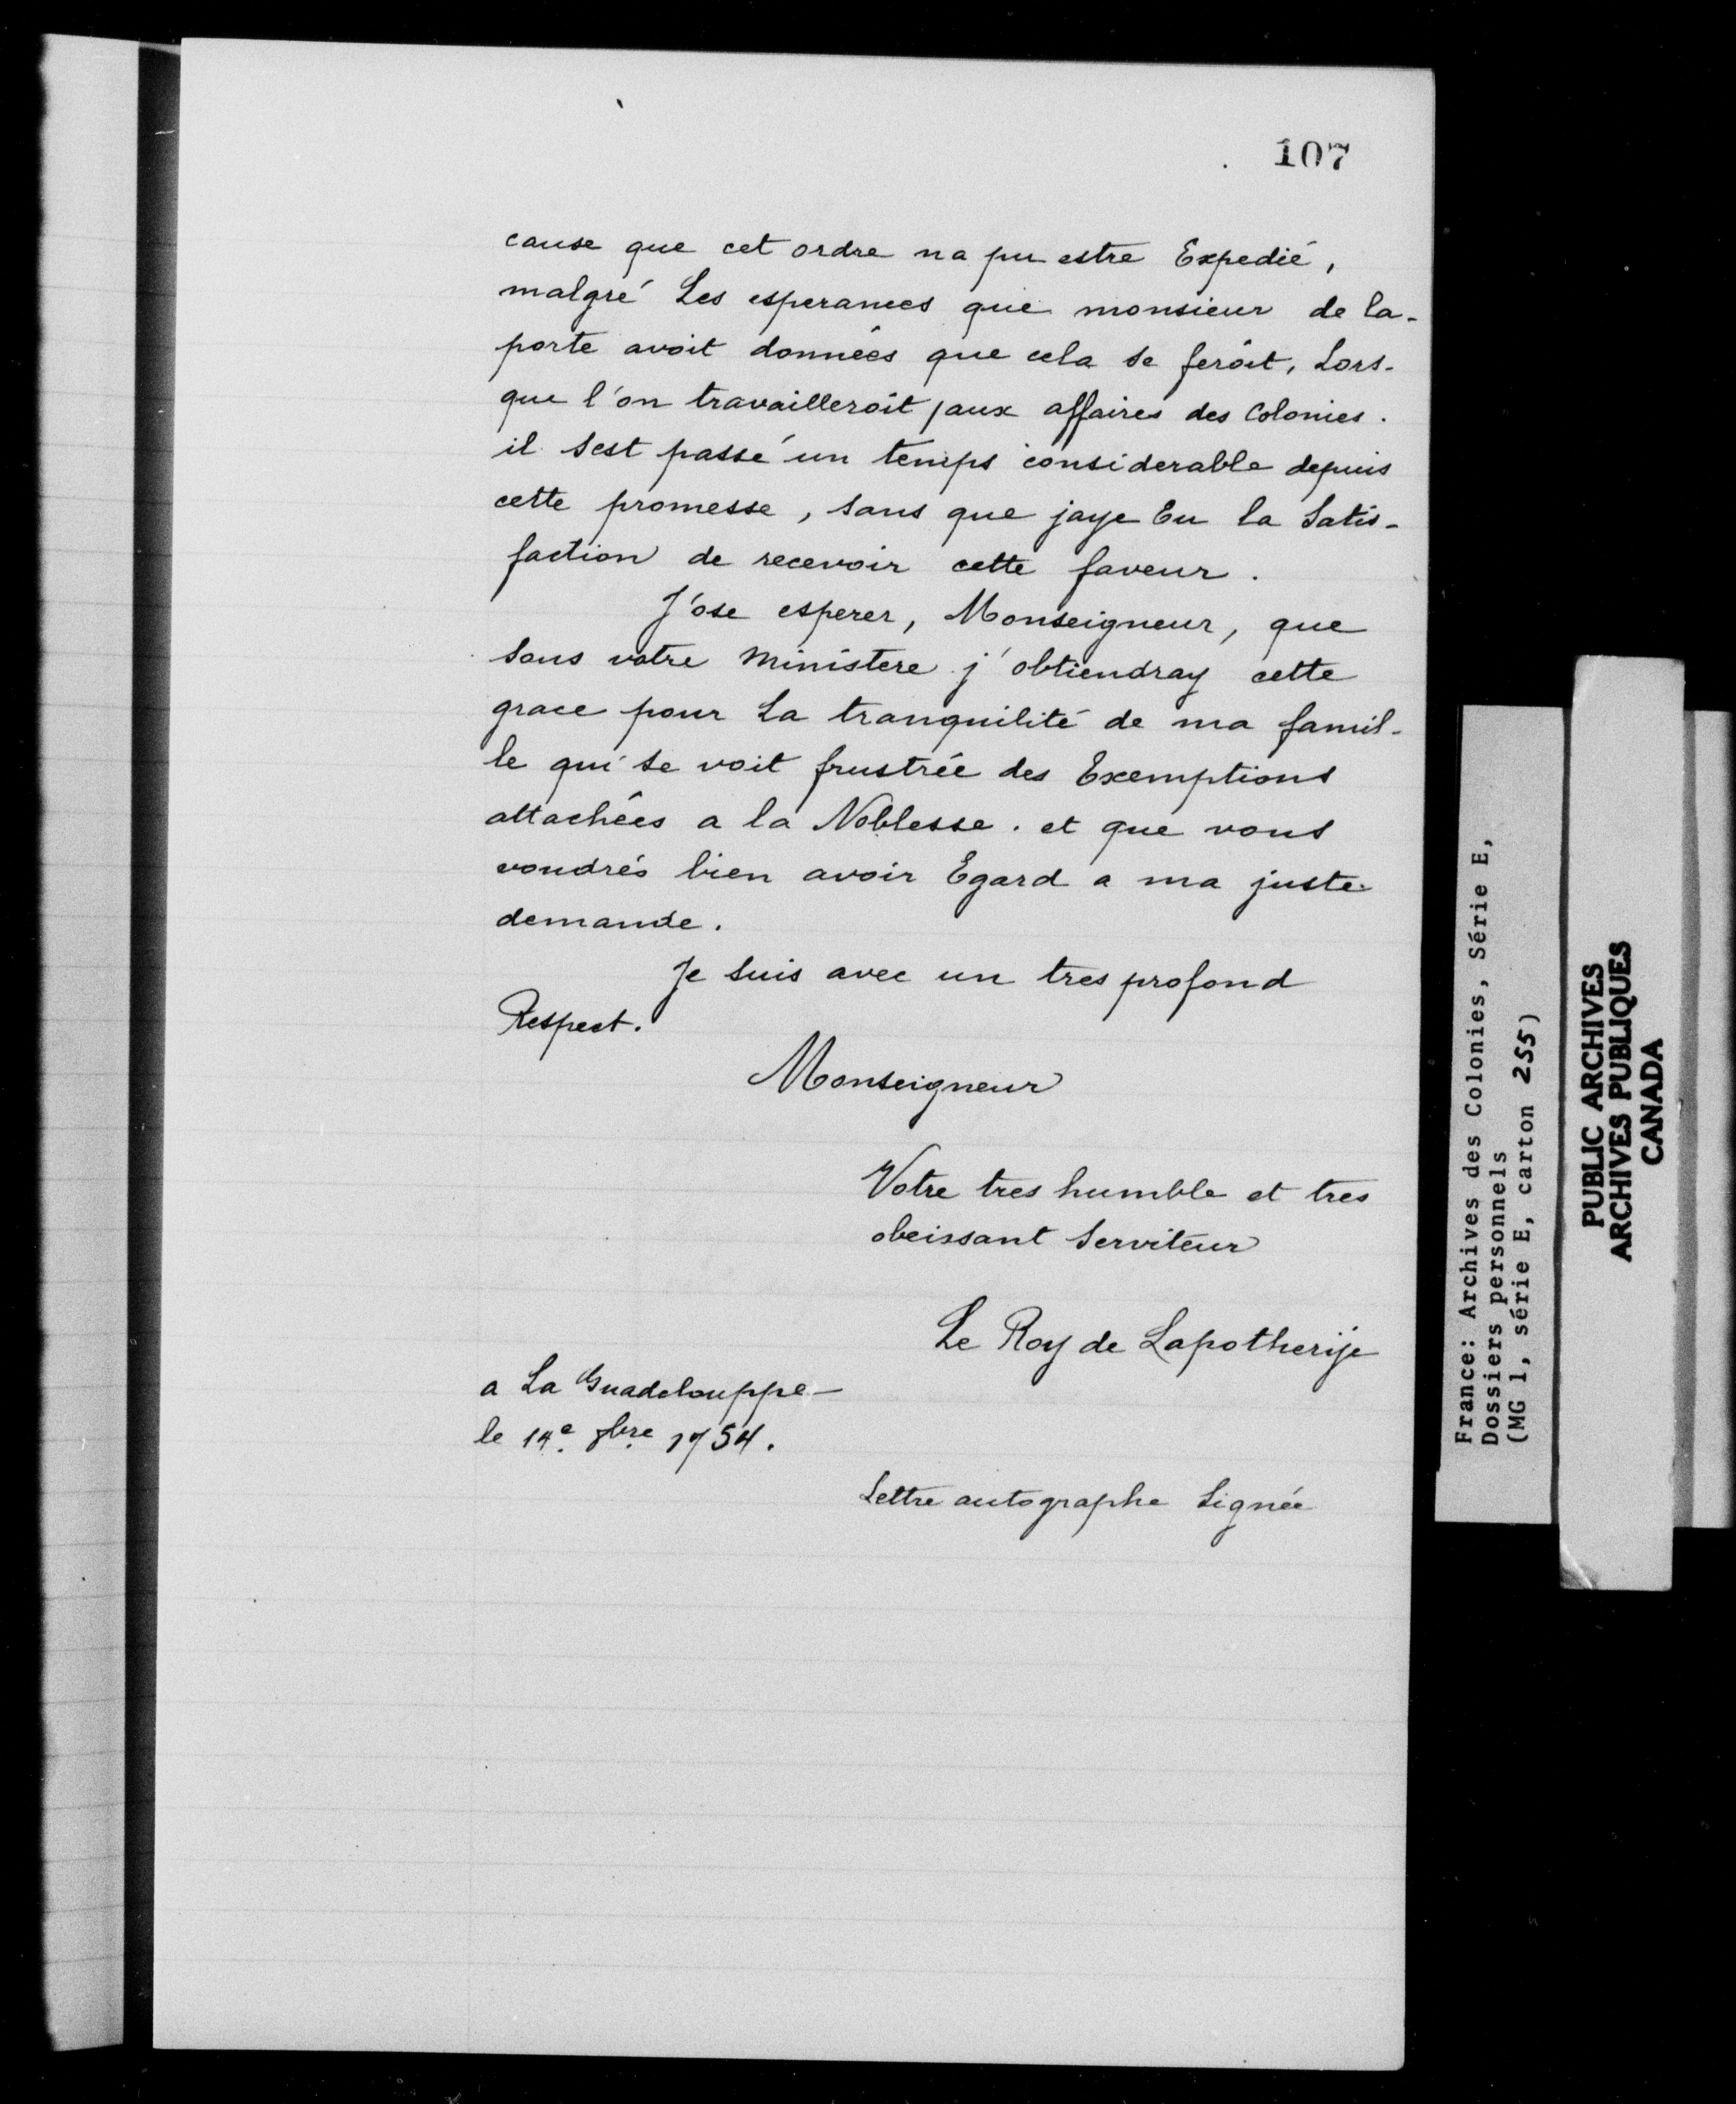 107
cause que cet ordre na pu estre Expedié,
malgré Les esperances que monsieur de la-
porte avoit données que cela se feroit, Lors-
que l'on travailleroit aux affaires des Colonies.
il sest passé un temps considerable depuis
cette promesse, sans que jaye Eu la Satis-
faction de recevoir cette faveur.
J'ose esperer, Monseigneur, que
sous votre Ministere j'obtiendray cette
grace pour La tranquilité de ma famil-
le qui se voit frustrée des Exemptions
attachées a la Noblesse. et que vous
voudrés bien avoir Egard a ma juste
demande.
Je suis avec un tres profond
Respect.
Monseigneur
Votre tres humble et tres
obeissant Serviteur
Le Roy de Lapotherije
a La Guadelouppe
le 14e 8bre 1754.
Lettre autographe Signée
France: Archives des Colonies, Série E,
Dossiers personnels
(MG 1, série E, carton 255)
PUBLIC ARCHIVES
ARCHIVES PUBLIQUES
CANADA